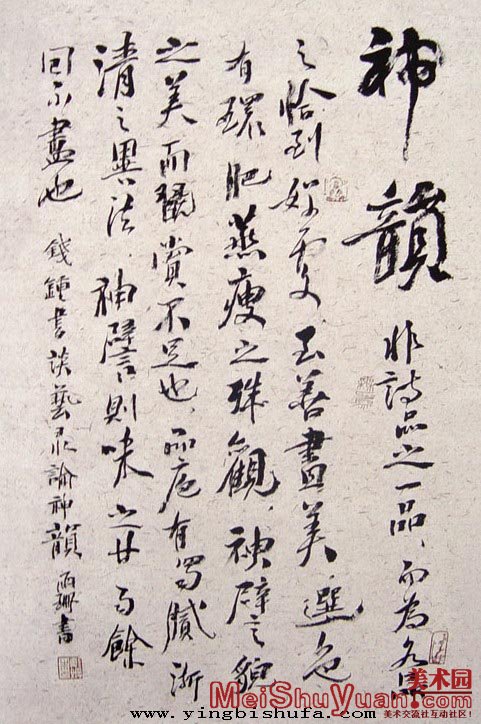 神韻 非詩品之一品、而為各品
之恰到好處至善盡美選色
有環肥燕瘦之殊觀、神譬之貌
之美而翫賞不足也、品庖有蜀膩浙
清之異法、神譬則味之甘而餘
回不盡也 錢鍾書談藝录論神韻 書
美术园
MeiShuYuan.com
美术交流社互动社区!
www.yingbishufa.com